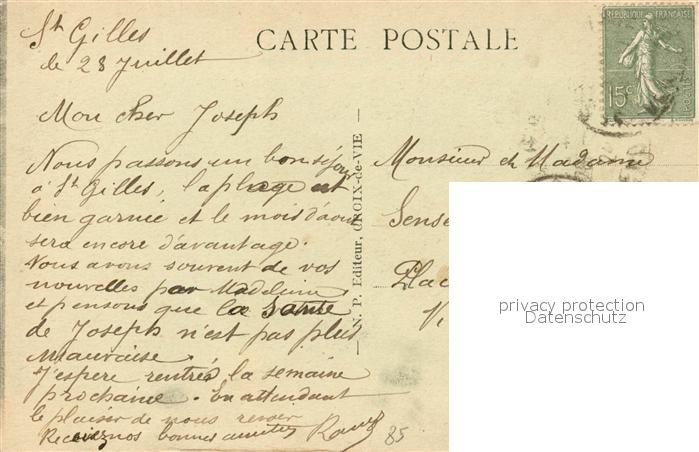 St Gilles
le 28 Juillet
CARTE POSTALE
REPUBLIQUE FRANÇAISE
15c
Mon cher Joseph
Nous passons un bon séjour
à St Gilles, la plage est
bien garnie et le mois d'aout
sera encore d'avantage.
Nous avons souvent de vos
nouvelles par Madeleine
et pensons que la Santé
de Joseph n'est pas plus
Mauvaise.
J'espere rentrés la semaine
prochaine. En attendant
le plaisir de nous revoir
Recevez nos bonnes amities
85
N. P. Editeur, CROIX-de-VIE
Monsieur et Madame
Sense
Plac
V
privacy protection
Datenschutz